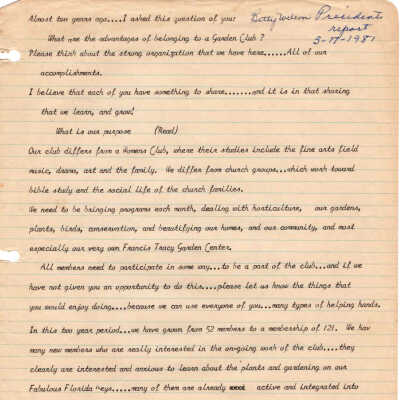 Almost two years ago....I asked this question of you:
Betty Wilson President's
report
3-17-1981
What are the advantages of belonging to a Garden Club?
Please think about the strong organization that we have here......All of our
accomplishments.
I believe that each of you have something to share.......and it is in that sharing
that we learn, and grow!
What is our purpose (Read)
Our club differs from a Womens Club, where their studies include the fine arts field
music, drama, art and the family. We differ from church groups...which work toward
bible study and the social life of the church families.
We need to be bringing programs each month, dealing with horticulture, our gardens,
plants, birds, conservation, and beautifying our homes, and our community, and most
especially our very own Francis Tracy Garden Center.
All members need to participate in some way...to be a part of the club....and if we
have not given you an opportunity to do this....please let us know the things that
you would enjoy doing....because we can use everyone of you....many types of helping hands.
In this two year period...we have grown from 52 members to a membership of 121. We hav
many new members who are really interested in the on-going work of the club....they
clearly are interested and anxious to learn about the plants and gardening on our
Fabulous Florida Keys.....many of them are already active and integrated into